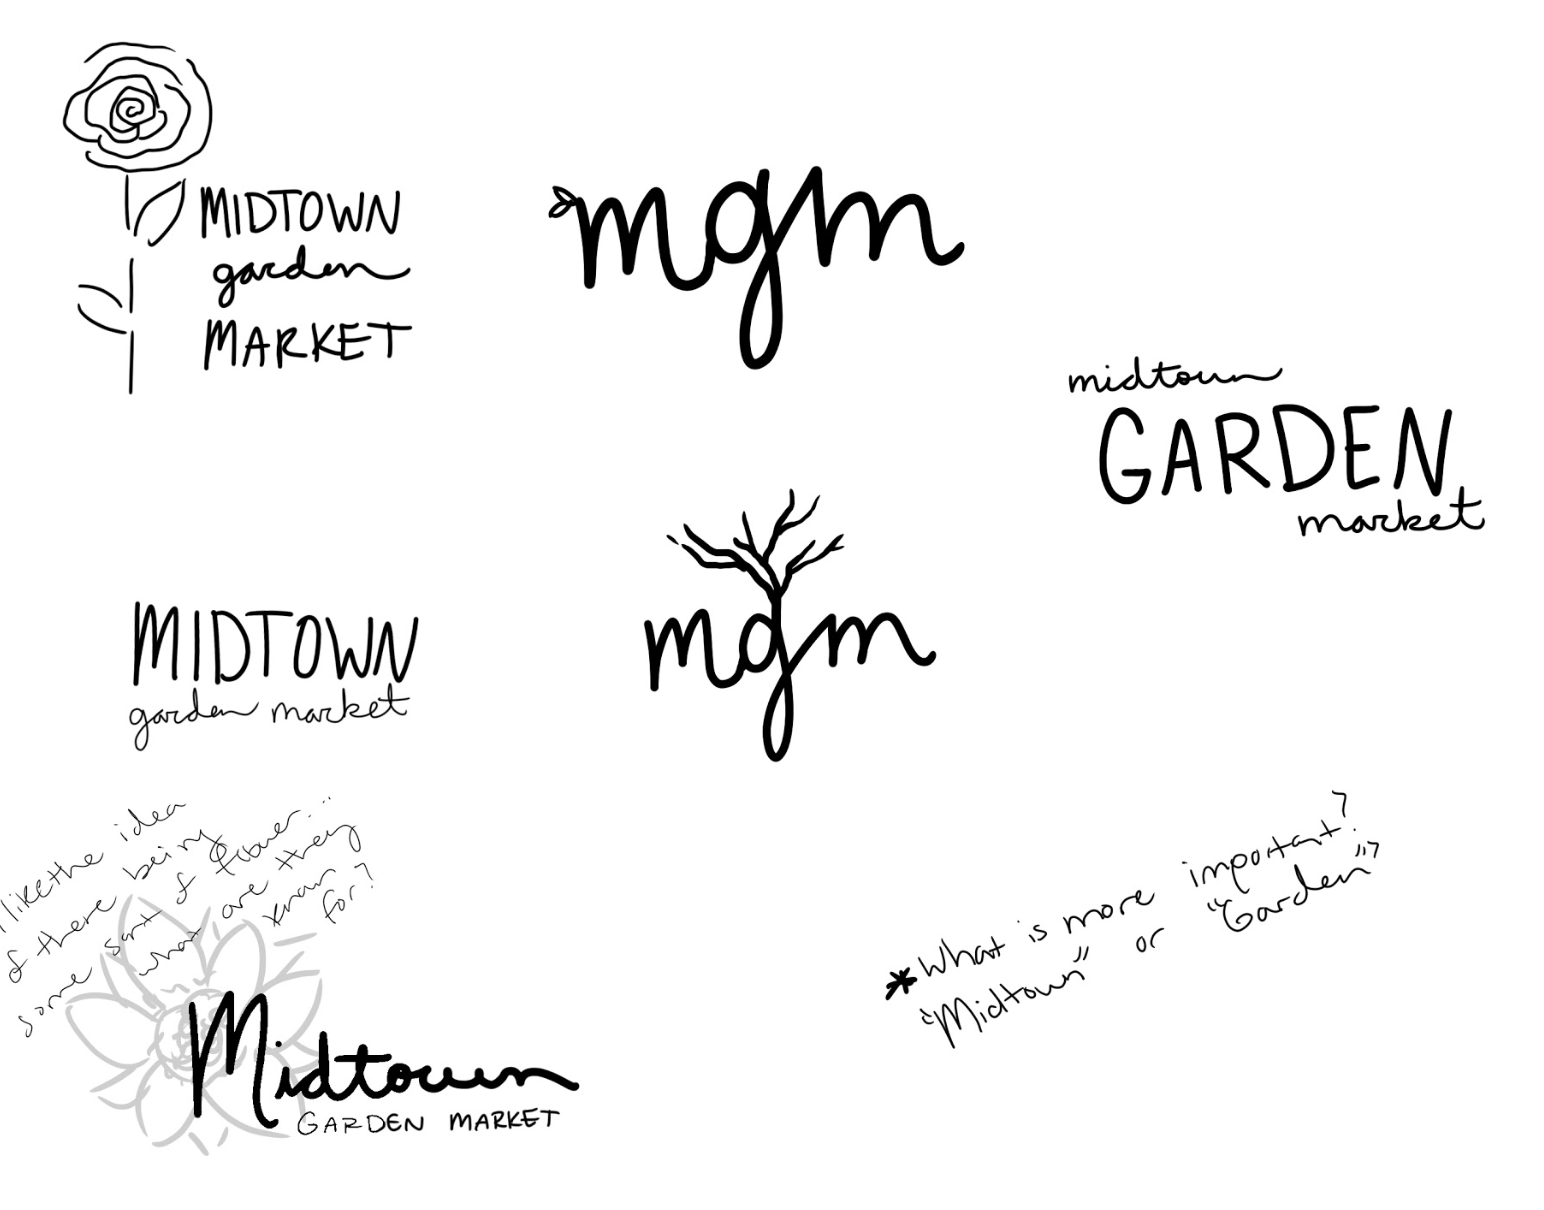 MIDTOWN
garden
MARKET
mgm
midtown
GARDEN
market
MIDTOWN
garden market
mgm
I like the idea
of there being
some sort of flower...
what are they
know
for?
Midtown
GARDEN MARKET
*What is more important?
"Midtown" or "Garden"?